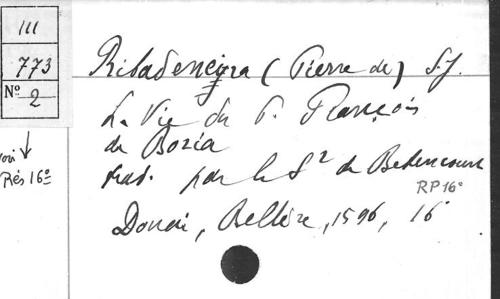 III
773
Nº 2
voir
Rés 16º
Ribadeneyra (Pierre de) S.J.
La Vie du P. François
de Boria
trad. par le Sr de Betencourt
RP 16º
Douai, Bellère, 1596, 16º